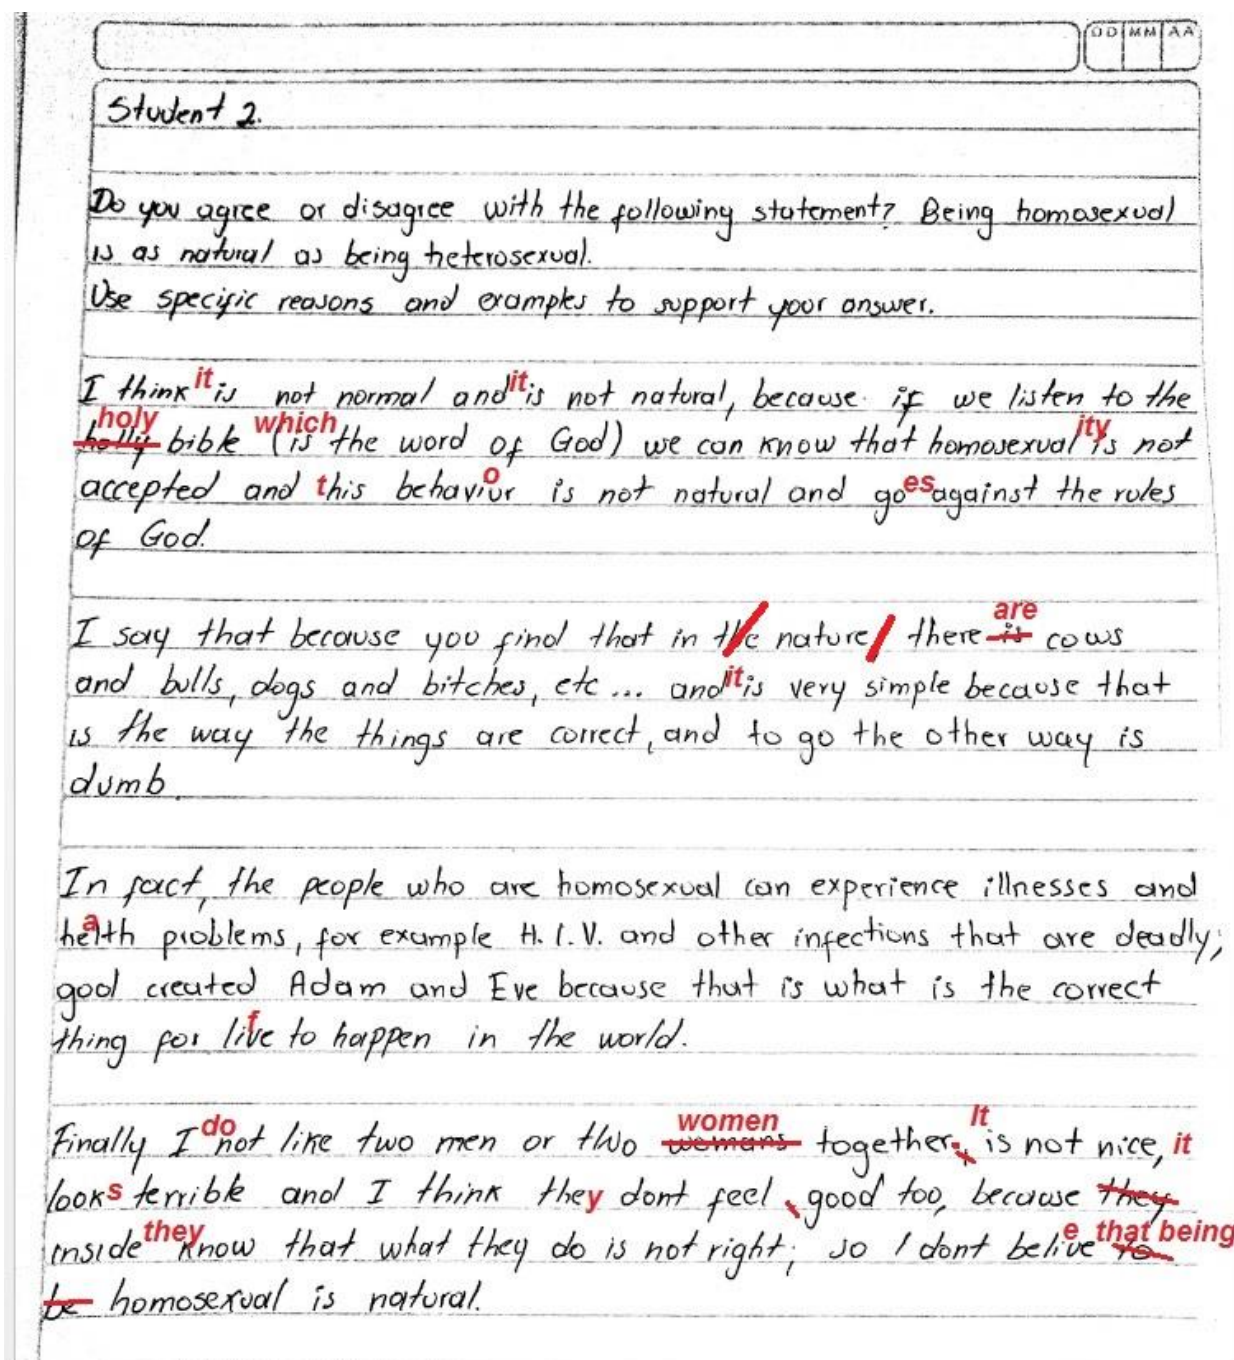 DD MM AA
Student 2.
Do you agree or disagree with the following statement? Being homosexual
is as natural as being heterosexual.
Use specific reasons and examples to support your answer.
it it
I think is not normal and is not natural, because if we listen to the
holy which ity
holly bible (is the word of God) we can know that homosexual is not
o es
accepted and this behaviur is not natural and go against the rules
of God.
are
I say that because you find that in the nature there is cows
it
and bulls, dogs and bitches, etc... and is very simple because that
is the way the things are correct, and to go the other way is
dumb.
In fact, the people who are homosexual can experience illnesses and
a
helth problems, for example H.I.V. and other infections that are deadly;
god created Adam and Eve because that is what is the correct
f
thing for live to happen in the world.
do women It
Finally I not like two men or two womans together, is not nice, it
looks terrible and I think they dont feel good too, because they
they e that being
inside know that what they do is not right; so I dont belive to
be homosexual is natural.